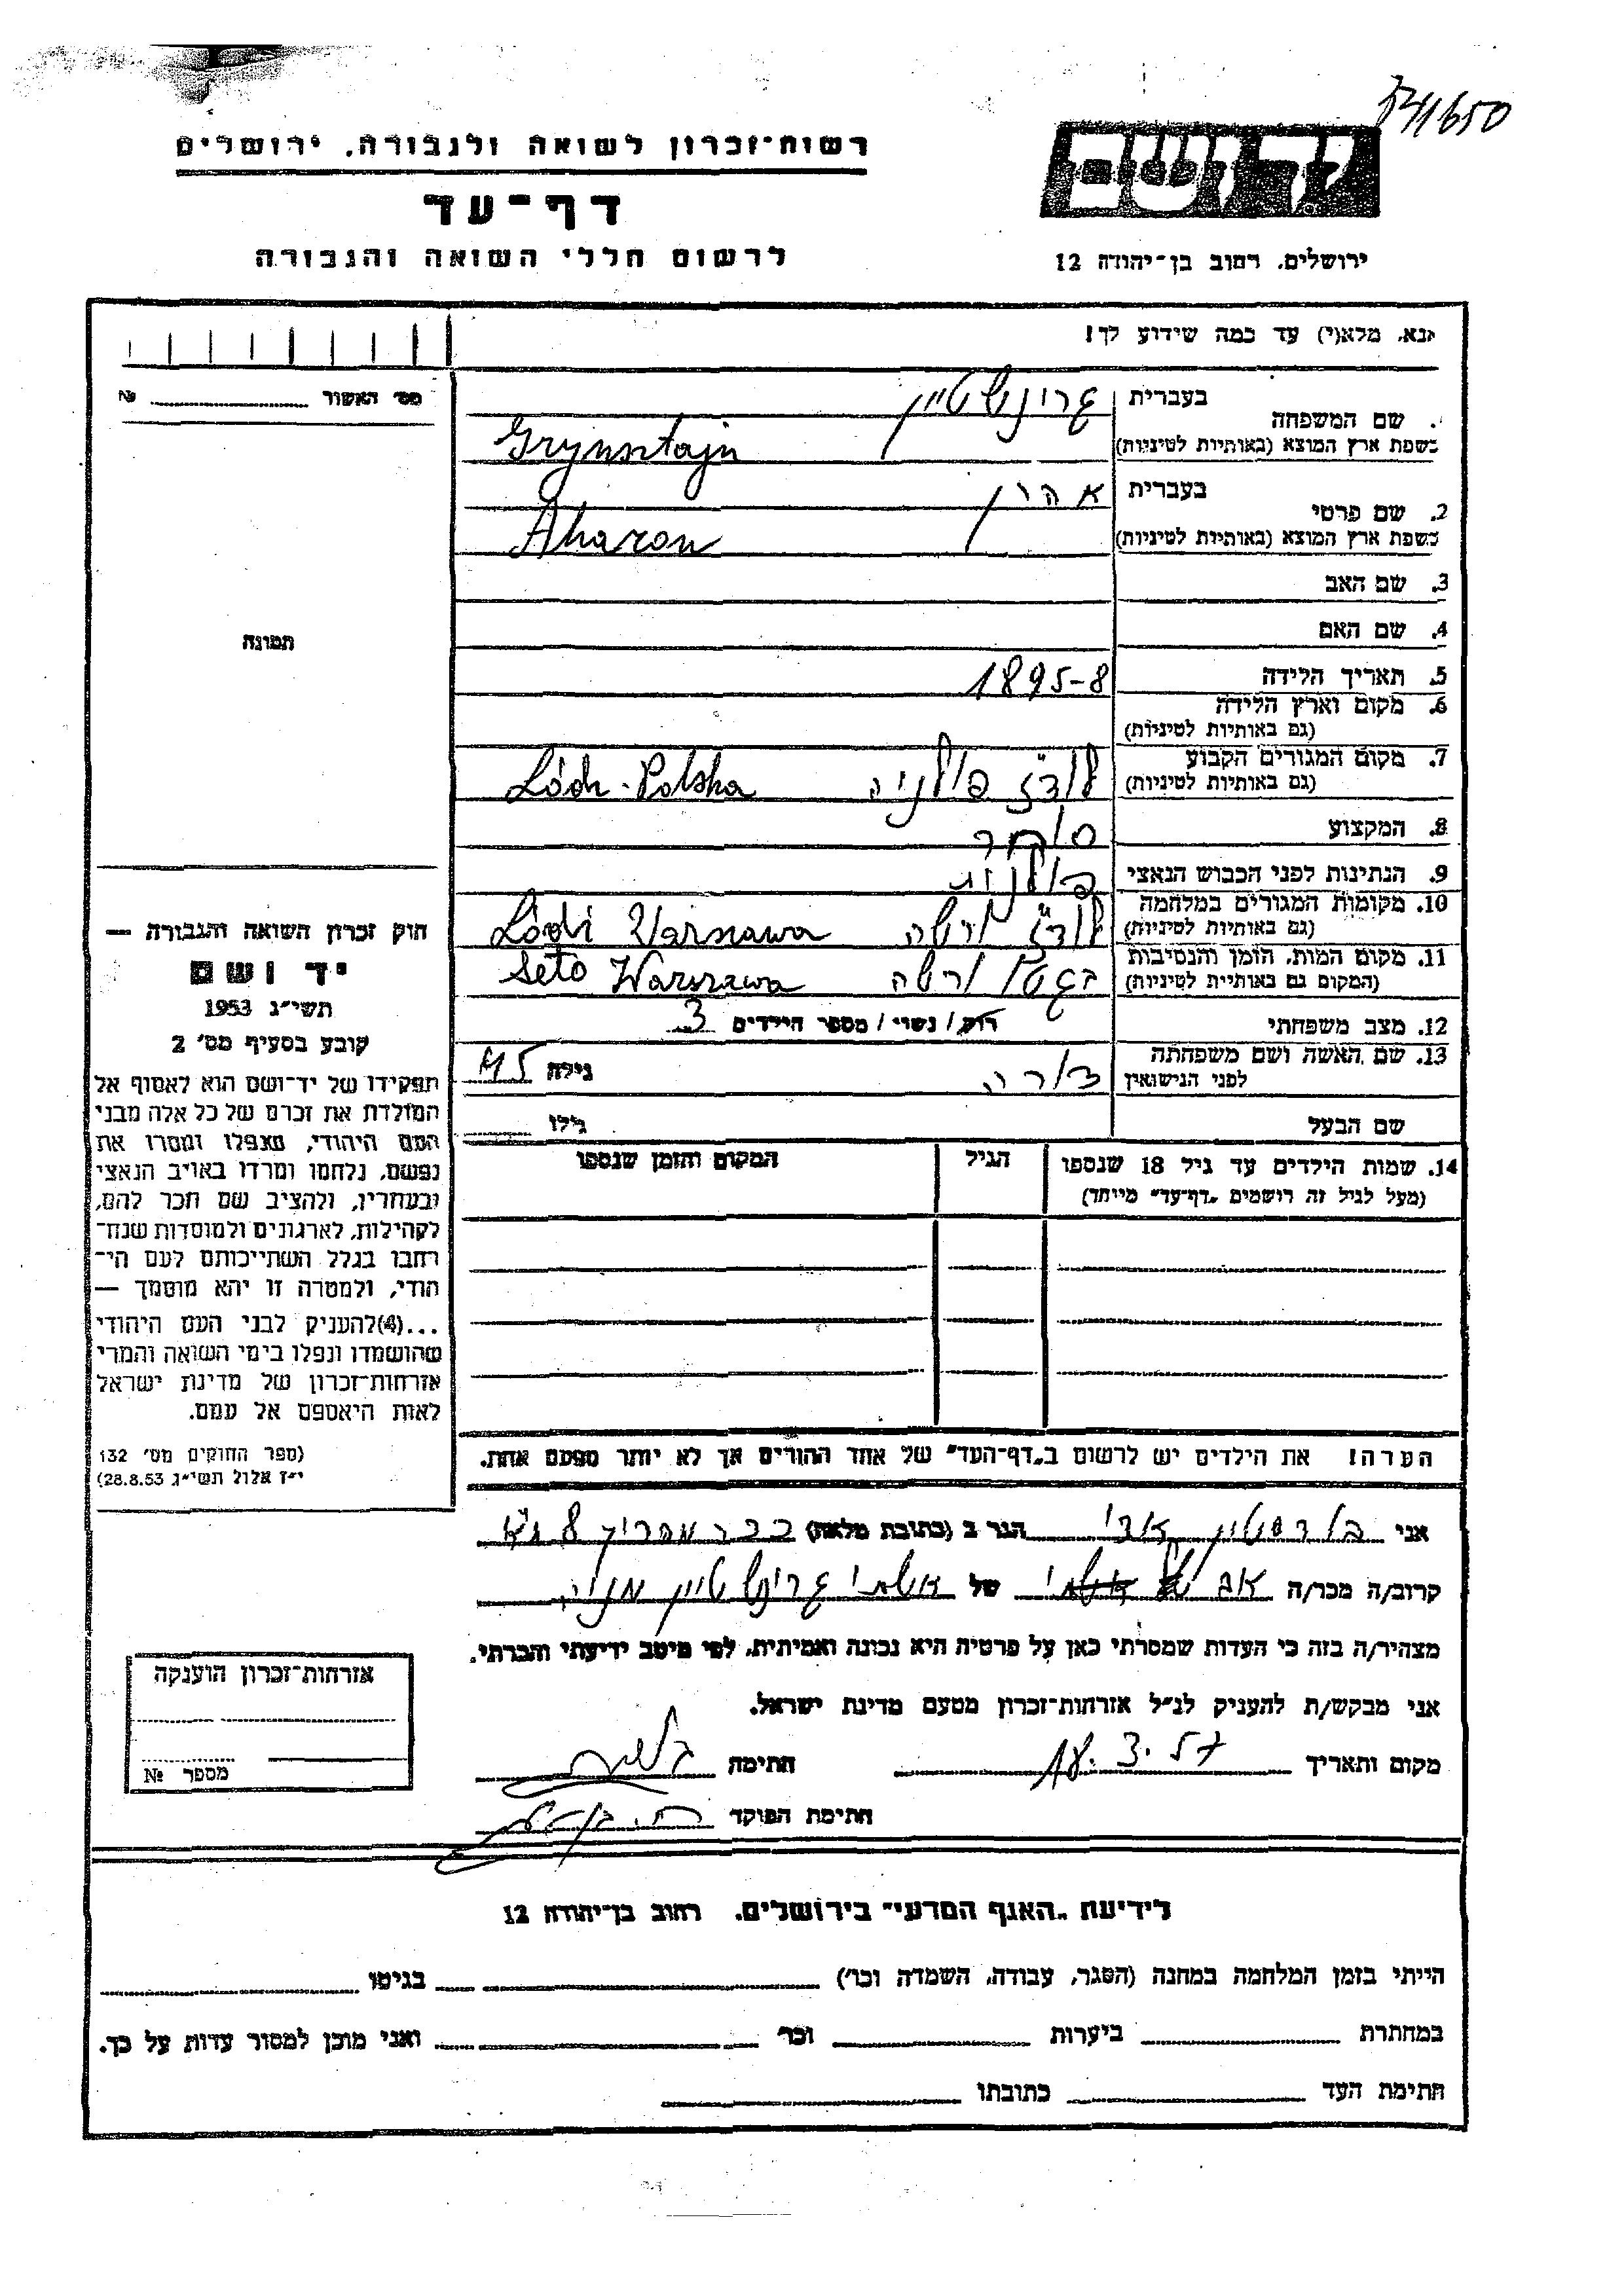 רשות-זכרון לשואה ולגבורה, ירושלים
דף-עד
לרשום חללי השואה והגבורה
ירושלים, רחוב בן-יהודה 12
נא, מלא(י) עד כמה שידוע לך!
מס' האשור № 
שם המשפחה בעברית גרינשטיין
בשפת ארץ המוצא (באותיות לטיניות) Grynsztajn
2. שם פרטי בעברית אהרן
בשפת ארץ המוצא (באותיות לטיניות) Aharon
3. שם האב
4. שם האם
תמונה
5. תאריך הלידה 1895-8
6. מקום וארץ הלידה
(גם באותיות לטיניות)
7. מקום המגורים הקבוע לודז פולניה Łódz-Polska
(גם באותיות לטיניות)
8. המקצוע סוחר
9. הנתינות לפני הכבוש הנאצי פולנית
10. מקומות המגורים במלחמה לודז ורשה Łódź Warszawa
(גם באותיות לטיניות)
11. מקום המות, הזמן והנסיבות בגטו ורשה Geto Warszawa
(המקום גם באותיות לטיניות)
12. מצב משפחתי רווק / נשוי / מספר הילדים 3
13. שם האשה ושם משפחתה
לפני הנישואין גילה 45
שם הבעל גילו
14. שמות הילדים עד גיל 18 שנספו הגיל המקום והזמן שנספו
(מעל לגיל זה רושמים „דף-עד" מייחד)
הערה! את הילדים יש לרשום ב„דף-העד" של אחד ההורים אך לא יותר מפעם אחת.
חוק זכרון השואה והגבורה —
יד ושם
תשי"ג 1953
קובע בסעיף מס' 2
תפקידו של יד-ושם הוא לאסוף אל
המולדת את זכרם של כל אלה מבני
העם היהודי, שנפלו ומסרו את
נפשם, נלחמו ומרדו באויב הנאצי
ובעוזריו, ולהציב שם וזכר להם,
לקהילות, לארגונים ולמוסדות שנח-
רבו בגלל השתייכותם לעם הי-
הודי, ולמטרה זו יהא מוסמך —
...(4)להעניק לבני העם היהודי
שהושמדו ונפלו בימי השואה והמרי
אזרחות-זכרון של מדינת ישראל
לאות היאספם אל עמם.
(ספר החוקים מס' 132
י"ז אלול תשי"ג 28.8.53)
אני הגר ב (כתובת מלאה)
קרוב/ה מכר/ה של גרינשטיין
מצהיר/ה בזה כי העדות שמסרתי כאן על פרטיה היא נכונה ואמיתית, לפי מיטב ידיעתי והכרתי.
אני מבקש/ת להעניק לנ"ל אזרחות-זכרון מטעם מדינת ישראל.
מקום ותאריך חתימה
חתימת הפוקד
אזרחות-זכרון הוענקה
מספר №
לידיעת „האגף המדעי" בירושלים, רחוב בן-יהודה 12
הייתי בזמן המלחמה במחנה (הסגר, עבודה, השמדה וכו') בגיטו
במחתרת ביערות וכו' ואני מוכן למסור עדות על כך.
חתימת העד כתובתו